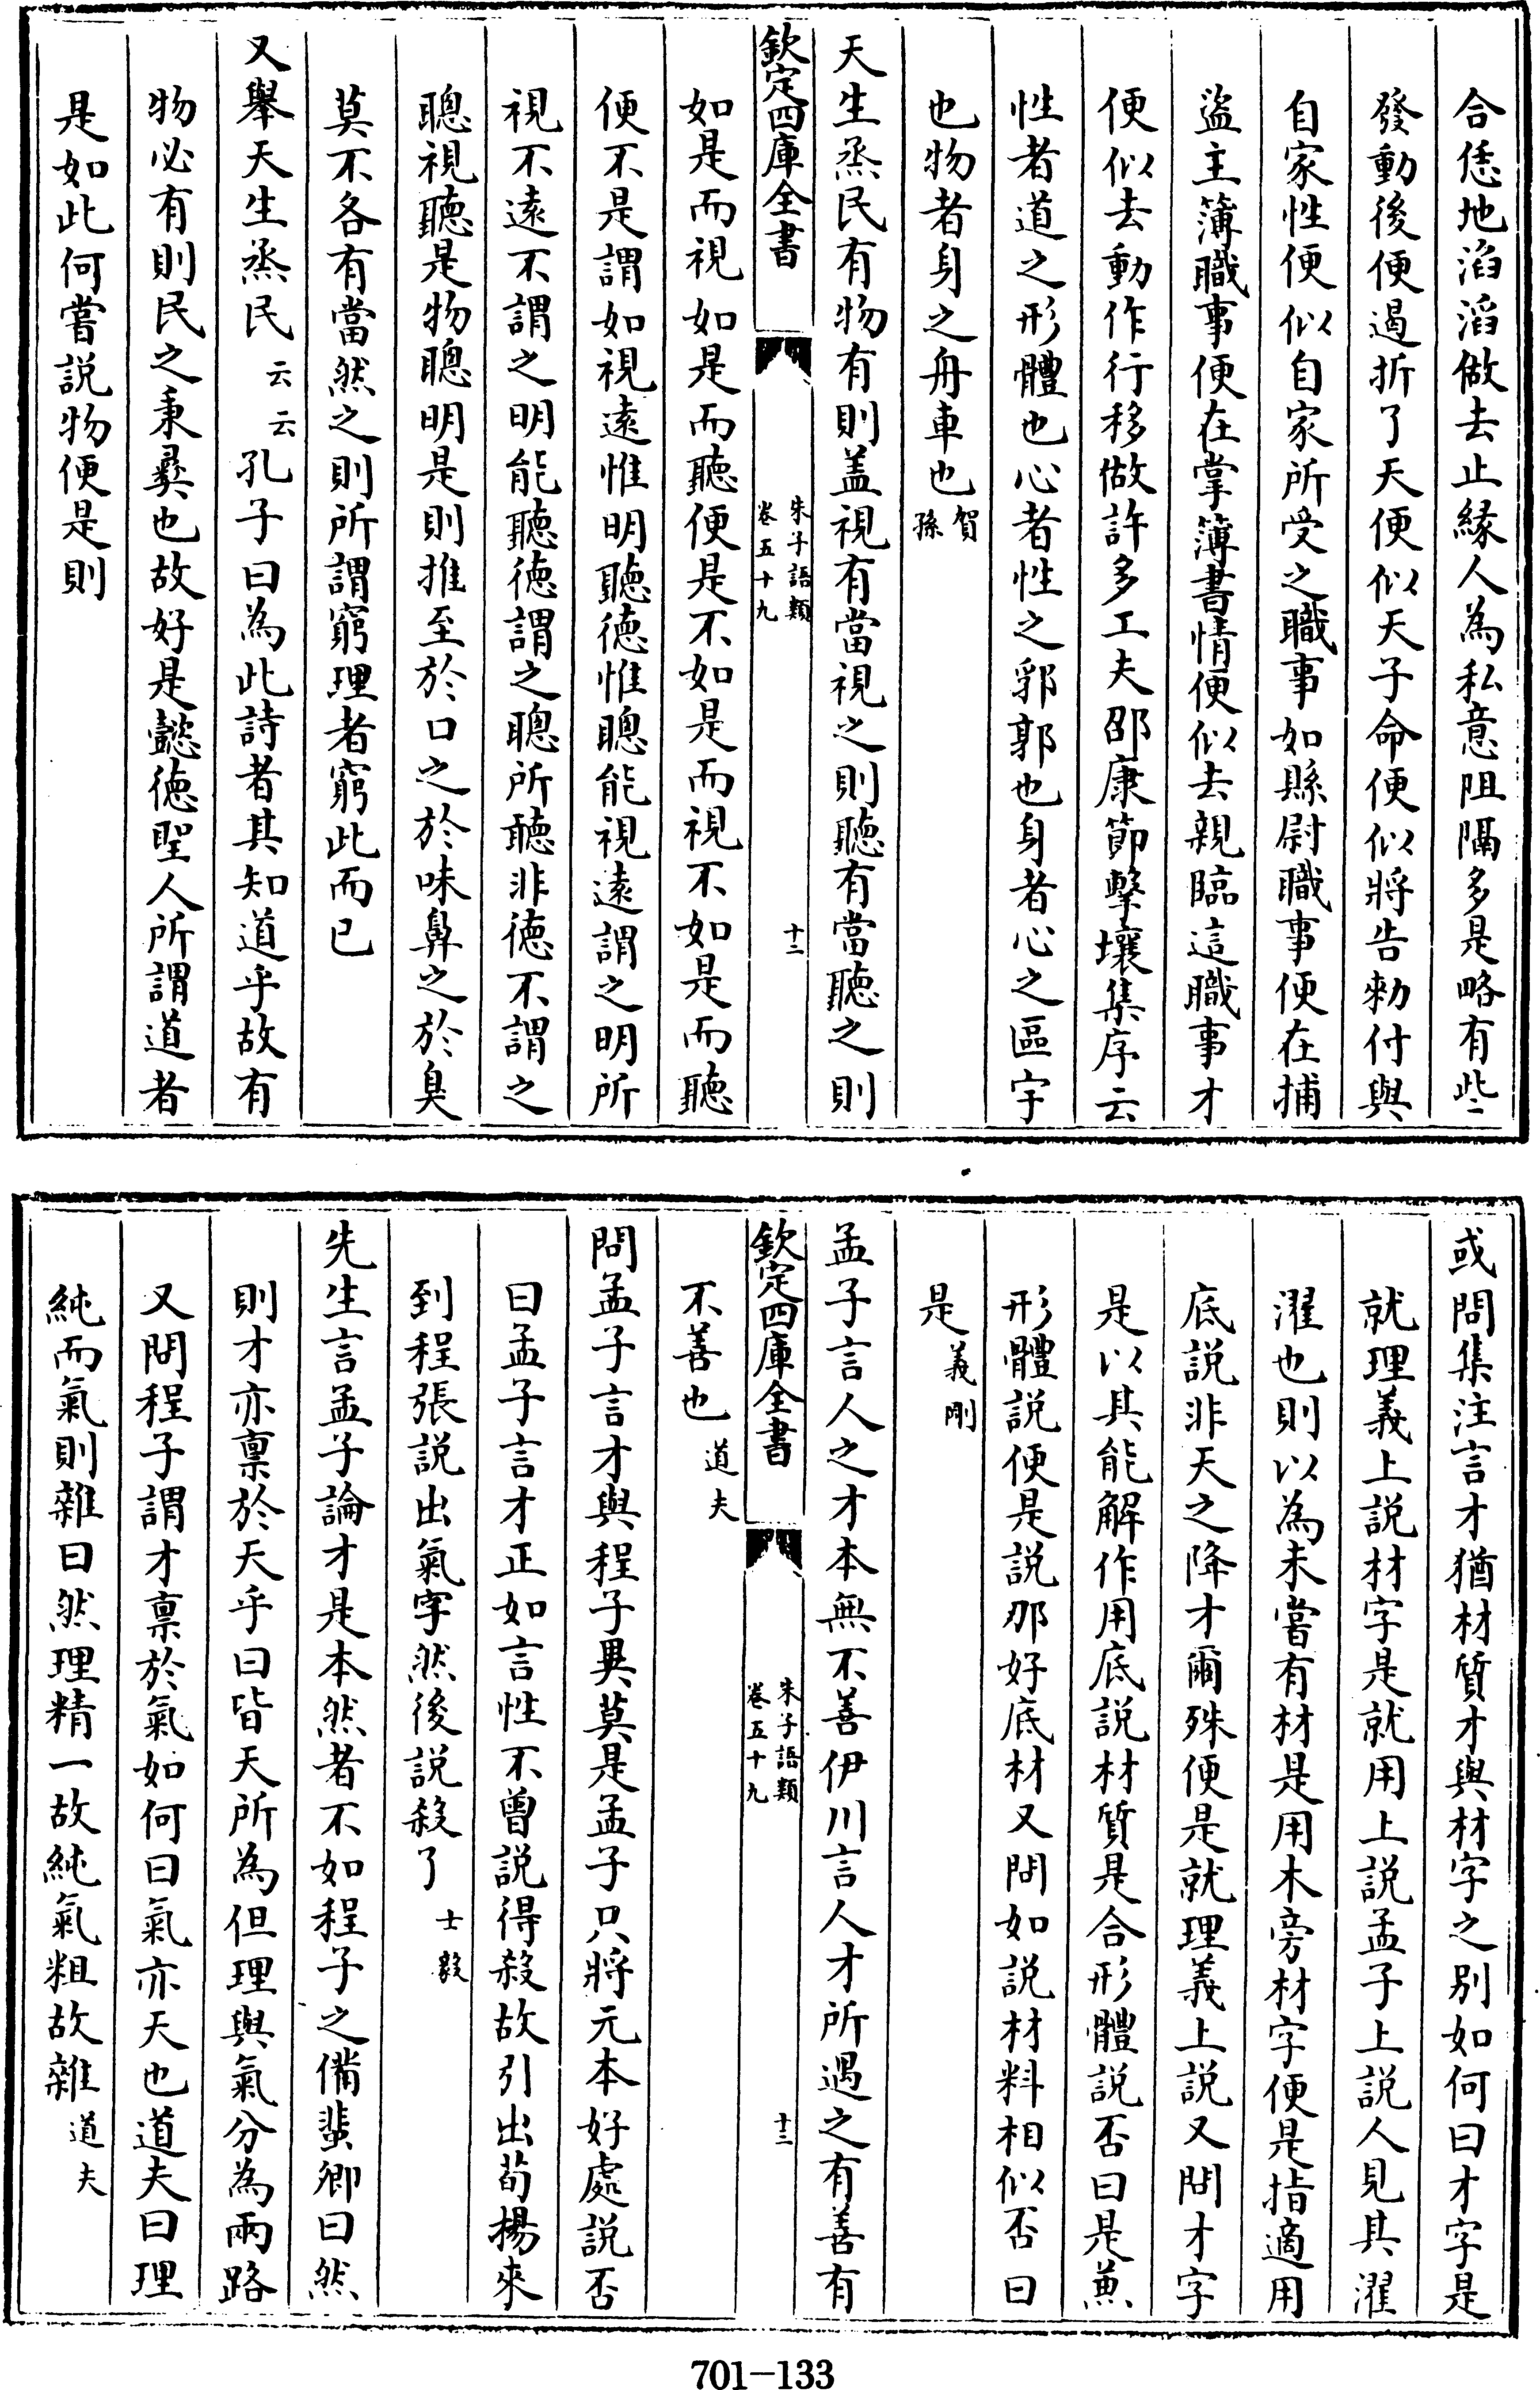 合恁地滔滔做去止緣人為私意阻隔多是略有些
發動後便遏折了天便似天子命便似將告勑付與
自家性便似自家所受之職事如縣尉職事便在捕
盜主簿職事便在掌簿書情便似去親臨這職事才
便似去動作行移做許多工夫邵康節擊壤集序云
性者道之形體也心者性之郛郭也身者心之區宇
也物者身之舟車也賀孫
天生烝民有物有則盖視有當視之則聽有當聽之則
欽定四庫全書 朱子語類卷五十九 十二
如是而視如是而聽便是不如是而視不如是而聽
便不是謂如視遠惟明聽徳惟聰能視遠謂之明所
視不遠不謂之明能聽徳謂之聰所聽非徳不謂之
聰視聽是物聰明是則推至於口之於味鼻之於臭
莫不各有當然之則所謂窮理者窮此而已
又舉天生烝民云云孔子曰為此詩者其知道乎故有
物必有則民之秉彛也故好是懿徳聖人所謂道者
是如此何嘗説物便是則
或問集注言才猶材質才與材字之别如何曰才字是
就理義上説材字是就用上説孟子上説人見其濯
濯也則以為未嘗有材是用木旁材字便是指適用
底説非天之降才爾殊便是就理義上説又問才字
是以其能解作用底説材質是合形體説否曰是兼
形體説便是説那好底材又問如説材料相似否曰
是義剛
孟子言人之才本無不善伊川言人才所遇之有善有
欽定四庫全書 朱子語類卷五十九 十三
不善也道夫
問孟子言才與程子異莫是孟子只將元本好處説否
曰孟子言才正如言性不曾説得殺故引出荀揚來
到程張説出氣字然後説殺了士毅
先生言孟子論才是本然者不如程子之備蜚卿曰然
則才亦稟於天乎曰皆天所為但理與氣分為兩路
又問程子謂才稟於氣如何曰氣亦天也道夫曰理
純而氣則雜曰然理精一故純氣粗故雜道夫
701-133